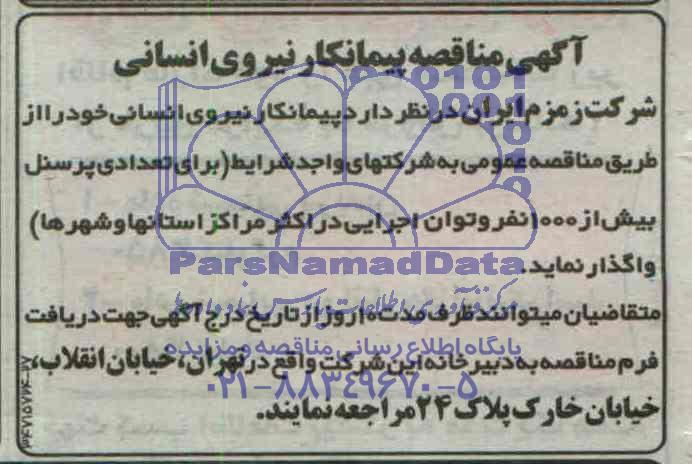 آگهی مناقصه پیمانکار نیروی انسانی
شرکت زمزم ایران در نظر دارد پیمانکار نیروی انسانی خود را از
طریق مناقصه عمومی به شرکتهای واجد شرایط (برای تعدادی پرسنل
بیش از ۱۰۰۰ نفر و توان اجرایی در اکثر مراکز استانها و شهرها)
واگذار نماید.
ParsNamadData
متقاضیان میتوانند ظرف مدت ۱۰ روز از تاریخ درج آگهی جهت دریافت
پایگاه اطلاع رسانی مناقصه و مزایده
فرم مناقصه به دبیرخانه این شرکت واقع در تهران، خیابان انقلاب،
۰۲۱-۸۸۳۴۹۶۷۰-۵
خیابان خارک پلاک ۲۴ مراجعه نمایند.